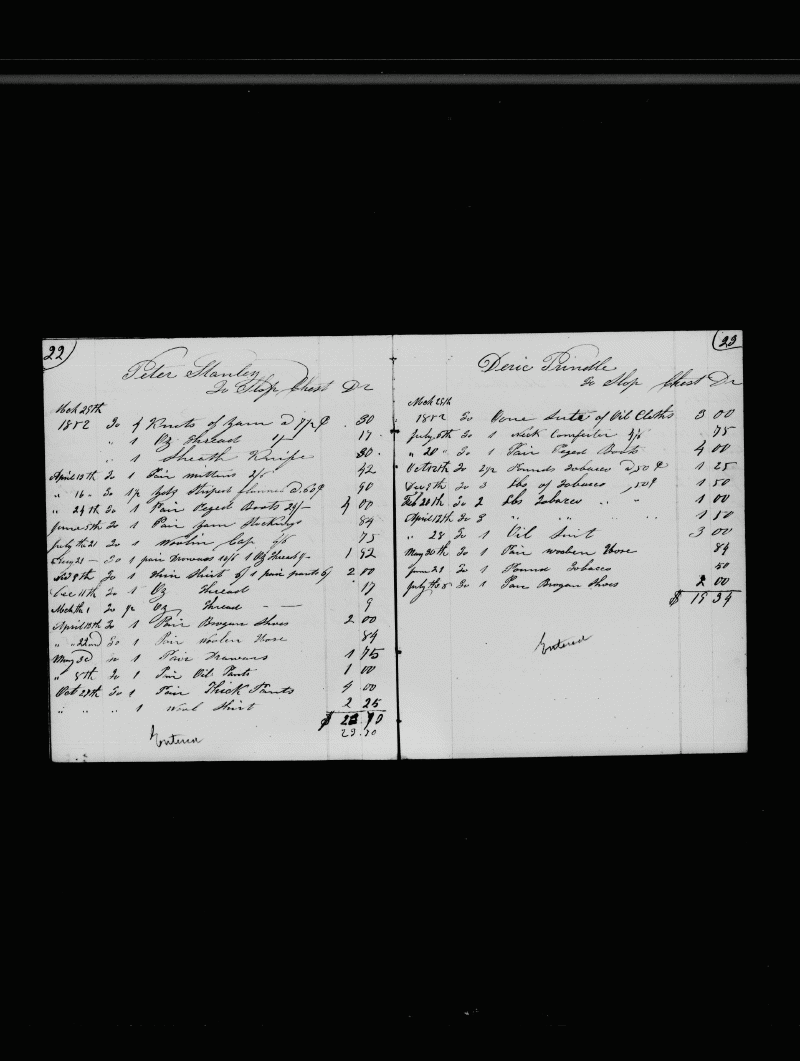 22
Peter Stanley
To Slop Chest Dr
Mch 25th
1852 To 4 Knots of Yarn a 7/2 ₵ . 30
" 1 Oz Thread 1/- 17
" 1 Sheath Knife 30
April 13th To 1 Pair mittens 2/6 42
" 16 " To 1/2 Yds Striped flannel a 60₵ 90
" 24th To 1 Pair Peged Boots 24/- 4 00
June 5th To 1 Pair Yarn Stockings 84
July th 21 To 1 Woolin Cap 4/6 75
To 1 pair Trowears 10/6 1 Oz Thread 1 92
9th To 1 Thin Shirt 6/ 1 pair pants 6/ 2 00
Dec 11th To 1 Oz Thread 17
Mch th 1 To 1/2 Oz Thread " — 9
April 13th To 1 Pair Brogan Shoes 2 00
" " 22nd To 1 Pair Woolen Hose 84
May 3d " 1 Pair Trawars 1 75
" 8th To 1 Pair Oil Pants 1 00
Oct 29th To 1 Pair Thick Pants 4 00
" " " 1 Wool Shirt 2 25
$ 23 70
23.70
Entered
23
Deric Prindle
To Slop Chest Dr
Mch 25th
1852 To one Sute of Oil Cloths 3 00
July 8th To 1 Neck Comforter 4/6 75
" 20 " To 1 Pair Peged Boots 4 00
Oct 12th To 2 1/2 Pounds Tobacco a 50 ₵ 1 25
Dec 8th To 3 Lbs of Tobacco , 50₵ 1 50
Feb 20th To 2 Lbs Tobacco " " 1 00
April 17th To 3 " " " " 1 50
" 28 To 1 Oil Suit 3 00
May 30th To 1 Pair woolen Hose 84
June 21 To 1 Pound Tobacco 50
July th 5 To 1 Pair Brogan Shoes 2 00
$ 19 34
Entered